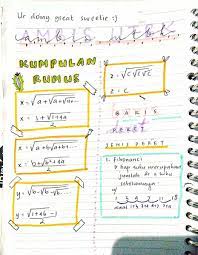 Ur doing great sweetie :)
KUMPULAN
RUMUS
x = √a+√a+√a...
x = 1+√1+4a
2
x = √a+b√a+b...
x = b+√b²+4a
2
y = √b-√b-√b...
y = √1+4b -1
2 = √c√c√c
2 = c
BARIS
DERET
JENIS DERET
1. Fibonacci
tiap suku merupakan
jumlah 2 suku
sebelumnya